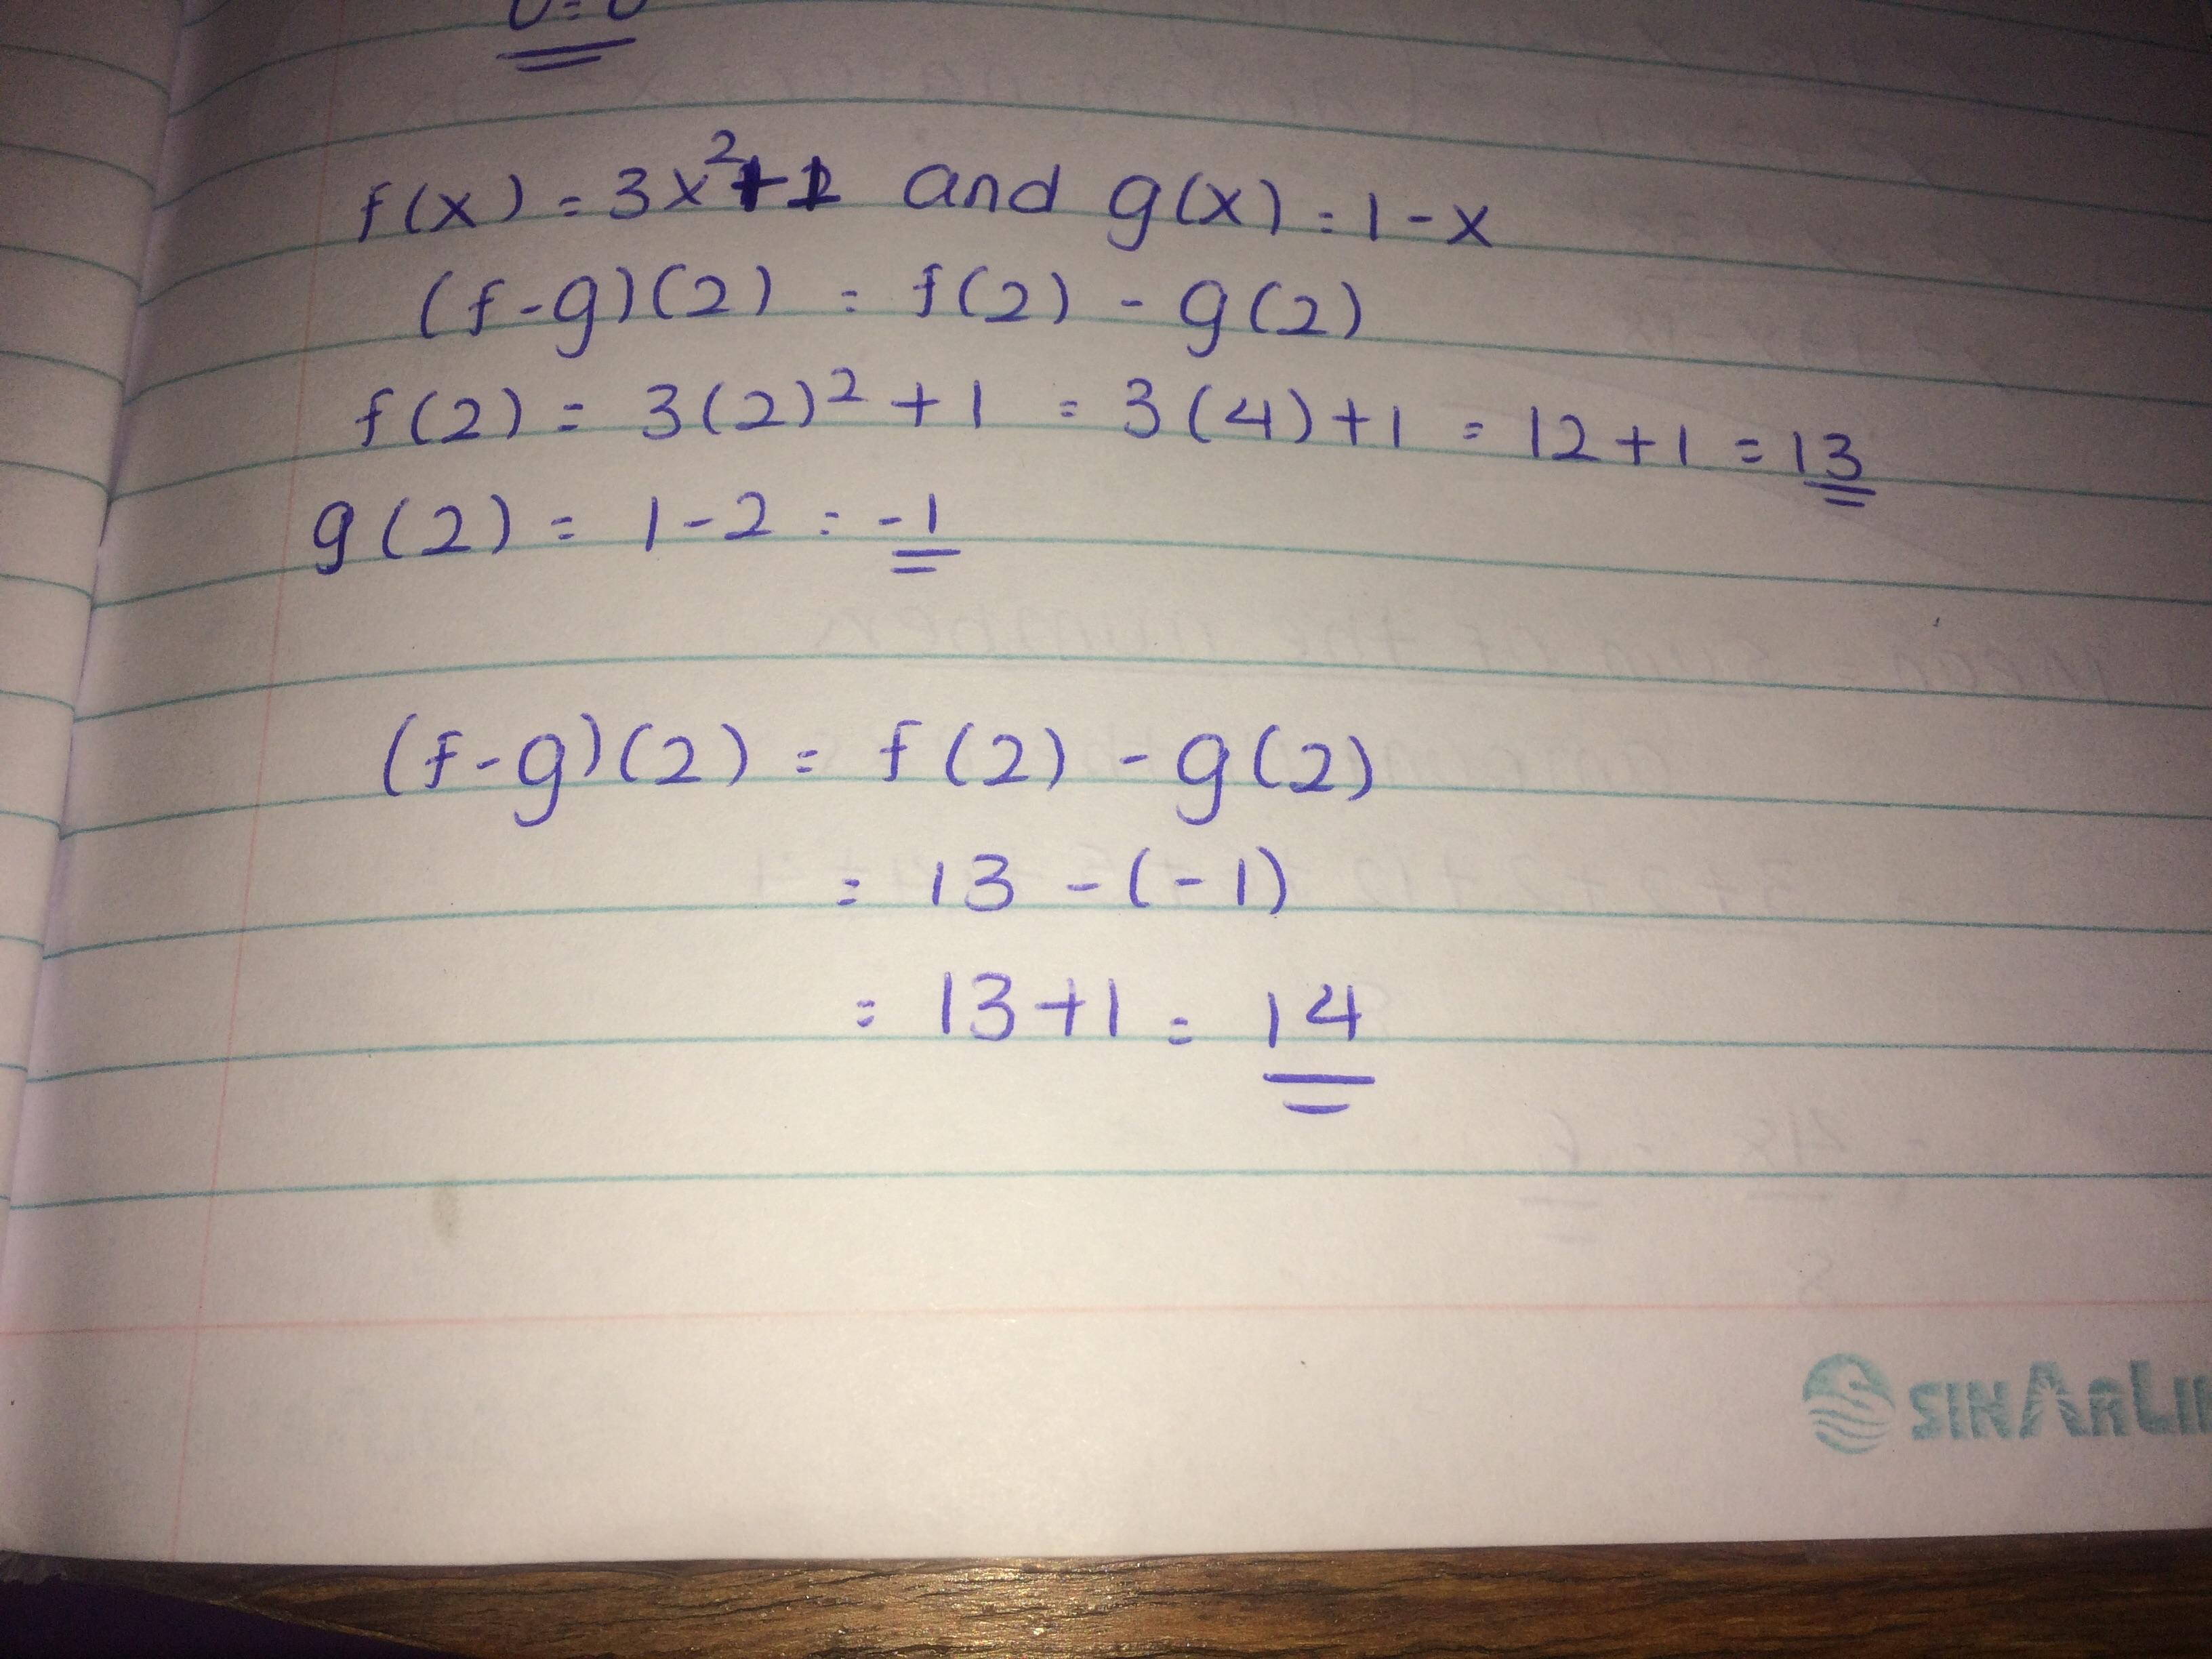 f(x) = 3x²+1 and g(x) = 1-x
(f-g)(2) = f(2) - g(2)
f(2) = 3(2)² + 1 = 3(4)+1 = 12+1 = 13
g(2) = 1-2 = -1
(f-g)(2) = f(2) - g(2)
= 13 -(-1)
= 13+1 = 14